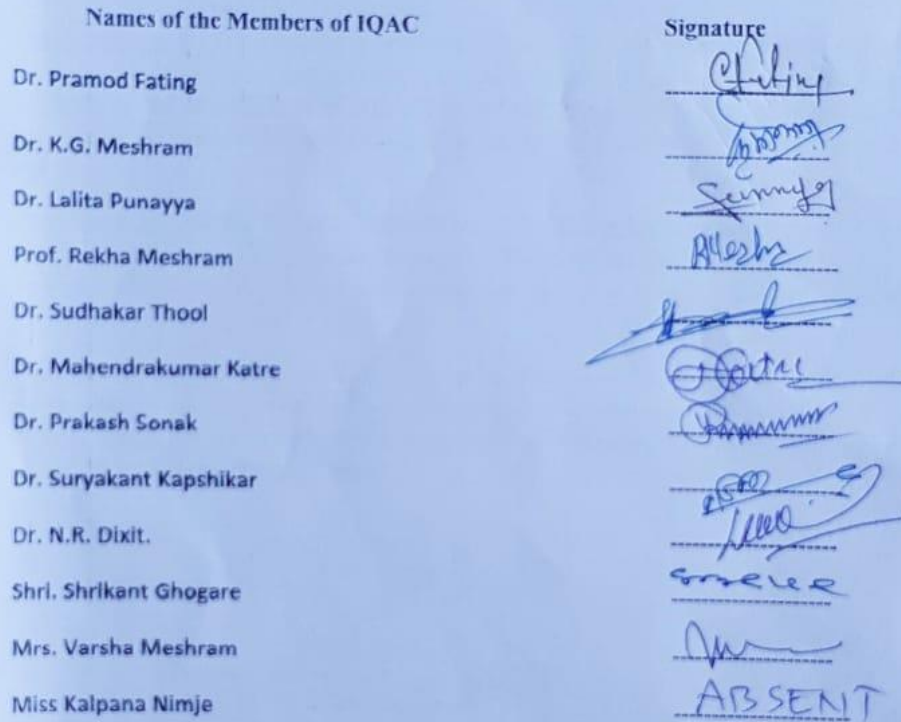 Names of the Members of IQAC Signature
Dr. Pramod Fating
Dr. K.G. Meshram
Dr. Lalita Punayya
Prof. Rekha Meshram
Dr. Sudhakar Thool
Dr. Mahendrakumar Katre
Dr. Prakash Sonak
Dr. Suryakant Kapshikar
Dr. N.R. Dixit.
Shri. Shrikant Ghogare
Mrs. Varsha Meshram
Miss Kalpana Nimje ABSENT